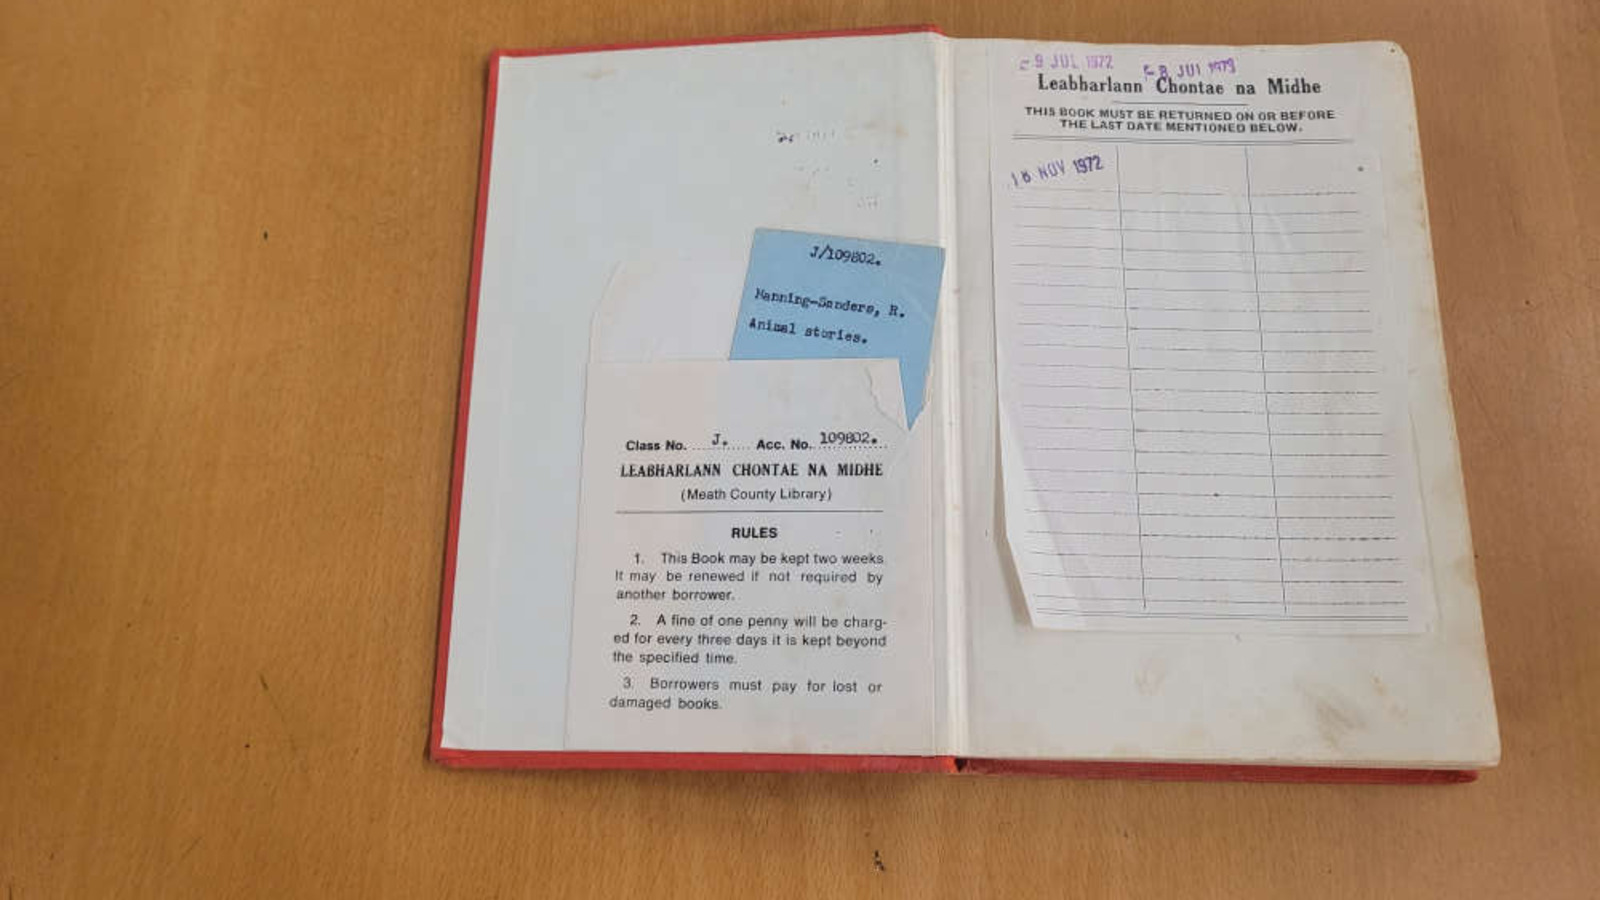 J/109802.
Manning-Sanders, R.
Animal stories.
Class No. J. Acc. No. 109802.
LEABHARLANN CHONTAE NA MIDHE
(Meath County Library)
RULES
1. This Book may be kept two weeks
It may be renewed if not required by
another borrower.
2. A fine of one penny will be charg-
ed for every three days it is kept beyond
the specified time.
3. Borrowers must pay for lost or
damaged books.
9 JUL 1972
8 JUL 1973
Leabharlann Chontae na Midhe
THIS BOOK MUST BE RETURNED ON OR BEFORE
THE LAST DATE MENTIONED BELOW.
NOV 1972